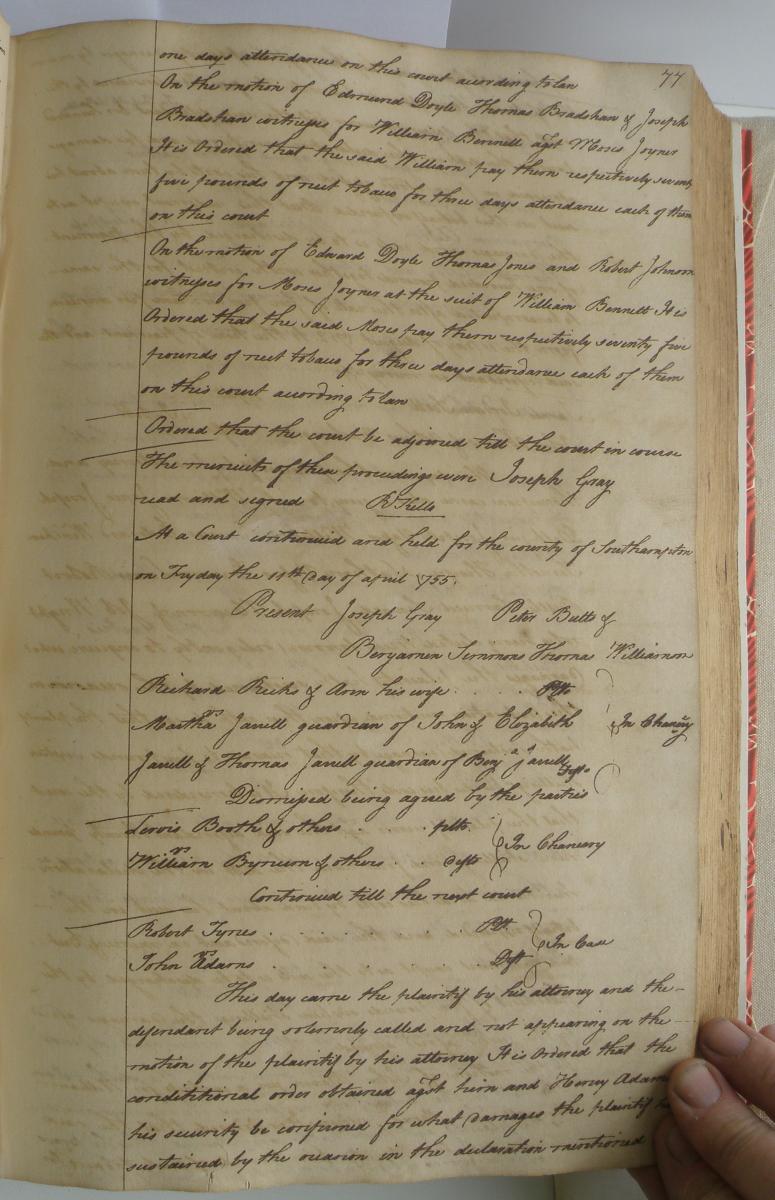 77
one days attendance on this court acording to law
On the motion of Edmund Doyle Thomas Bradshaw & Joseph
Bradshaw witnesses for William Bennett agst Moses Joyner
It is Ordered that the said William pay them respectively seventy
five pounds of neet tobaco for three days attendance each of them
on this court
On the motion of Edward Doyle Thomas Jones and Robert Johnson
witnesses for Moses Joyner at the suit of William Bennett It is
Ordered that the said Moses pay them respectively seventy five
pounds of neet tobaco for three days attendance each of them
on this court acording to law
Ordered that the court be adjorned till the court in course
The minuits of these proceedings were Joseph Gray
read and signed R Kello
At a Court continuid and held for the county of Southampton
on Fryday the 11th Day of april 1755.
Present Joseph Gray Peter Butts &
Benjamen Simmons Thomas Williamson
Richard Ricks & Ann his wife . . . . Plts
vs
Martha Jarrell guardian of John & Elizabeth In Chancy
Jarrell & Thomas Jarrell guardian of Benja Jarrell Defts
Dismissed being agreed by the parties
Lewis Booth & others . . . . plts
vs In Chancery
William Bynum & others . . defts
Continuid till the next court
Robert Tynes . . . . . . Plt
vs In Case
John Adams . . . . . Deft
This day came the plaintif by his attorney and the
defendant being solemnly called and not appearing on the
motion of the plaintif by his attorney It is Ordered that the
condititional order obtained agst him and Henry Adams
his security be confirmed for what Damages the plaintif
sustained by the occasion in the declaration mentioned